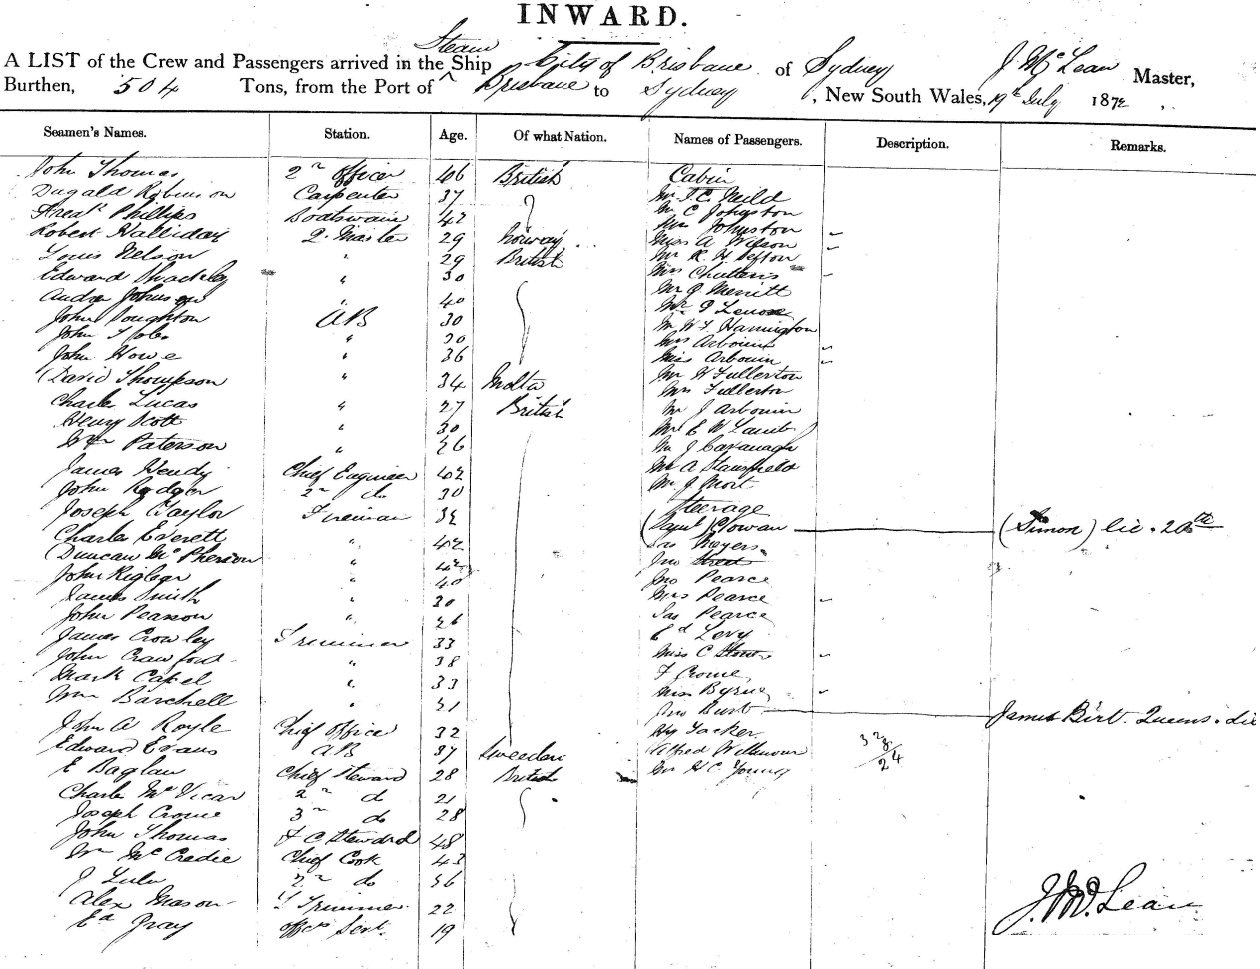 INWARD.
Steam
A LIST of the Crew and Passengers arrived in the Ship City of Brisbane of Sydney J McLean Master,
Burthen, 504 Tons, from the Port of Brisbane to Sydney, New South Wales, 19th July 1872
Seamen's Names. Station. Age. Of what Nation. Names of Passengers. Description. Remarks.
John Thomas 2nd officer 46 British Cabin
Dugald Robinson Carpenter 37 Mr T C Neild
Fredk Phillips Boatswain 42 Mr C Johnston
Robert Halliday Q. Master 29 Norway Mrs Johnston
Louis Nelson " 29 British Miss A Wilson
Edward Shackley " 30 Mr R H Sefton
Andw Johnson " 40 Mrs Chatteris
John Boughton AB 30 Mr J Merritt
John " 30 Mr D Lenox
John Howe " 36 Mr W F Harrington
(David Thompson " 34 Malta Mrs Arbouin
Charles Lucas " 27 British Miss Arbouin
Henry Scott " 30 Mr H Fullerton
Wm Paterson " 26 Mrs Fullerton
James Hendy Chief Engineer 42 Mr J Arbouin
John Rodger 2nd do 30 Mr E W Lamb
Joseph Taylor Fireman 32 Mr J Cavanagh
Charles Everett " 42 Mr A Stansfield
(Duncan McPherson " 42 Mr J Mort
John " 40 Steerage
James Smith " 30 (Saml) Cowan (Simon) lic. 20th
John Pearson " 26 Jas Meyers
James Crowley Trimmer 33 Jno Street
John Crawford " 38 Jno Pearce
Mark Capel " 33 Mrs Pearce
Wm Barchell " 31 Jas Pearce
John A Royle Chief Officer 32 Ed Levy
Edward Evans AB 37 Sweeden Miss C
E Baglan Chief Steward 28 British F Crome
Charles McVicar 2nd do 21 Miss Byrne
Joseph Crome 3rd do 28 Jno Burt James Birt. Queens. Lic
John Thomas F C Steward 48 Hy Tacker
Wm McCredie Chief Cook 43 Alfred Willmour
J Lulu 2nd do 36 Mr H C Young
Alex Mason Trimmer 22
Ed Gray offrs Servt. 19
24
J. McLean